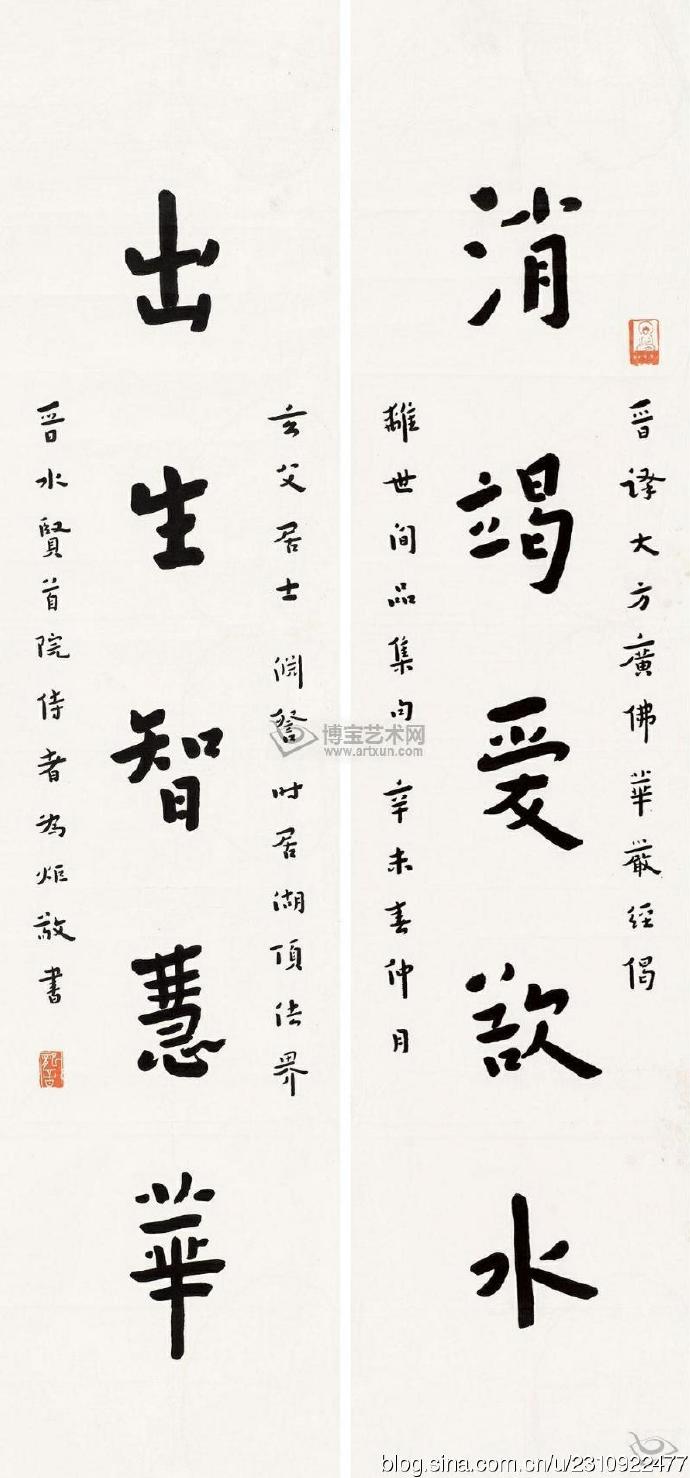 消竭愛欲水
晋译大方廣佛華嚴经偈
離世间品集句 辛未春仲月
出生智慧華
玄父居士 淵詧 时居湖頂法界
晋水賢首院侍者为炬敬書
博宝艺术网
www.artxun.com
blog.sina.com.cn/u/2310922477